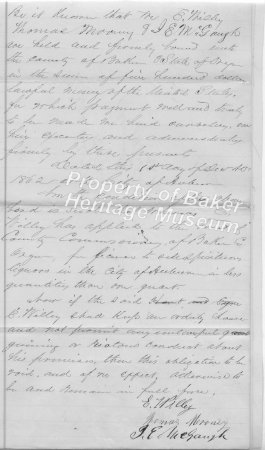 Be it known that we E. Willey
Thomas Mooney & J. E. McGaugh
are held and firmly bound unto
the county of Baker State of Ogn
in the sum of five hundred dollars
lawful money of the United States
for which payment well and truly
to be made we bind ourselves, our
heirs, executors and administrators
firmly by these presents
Dated this 1st day of Dec AD
1862
bond is such that
Willey has applied to the
County Commissioners of Baker C
Oregon for license to sell spiritous
liquors in the City of Auburn in less
quantities than one quart.
Now if the said
E Willey shall keep an orderly house
and not permit any unlawful
gaming or riotous conduct about
his premises, then this obligation to be
void and of no effect, otherwise to
be and remain in full force.
E. Willey
Thomas Mooney
J. E. McGaugh
Property of Baker
Heritage Museum